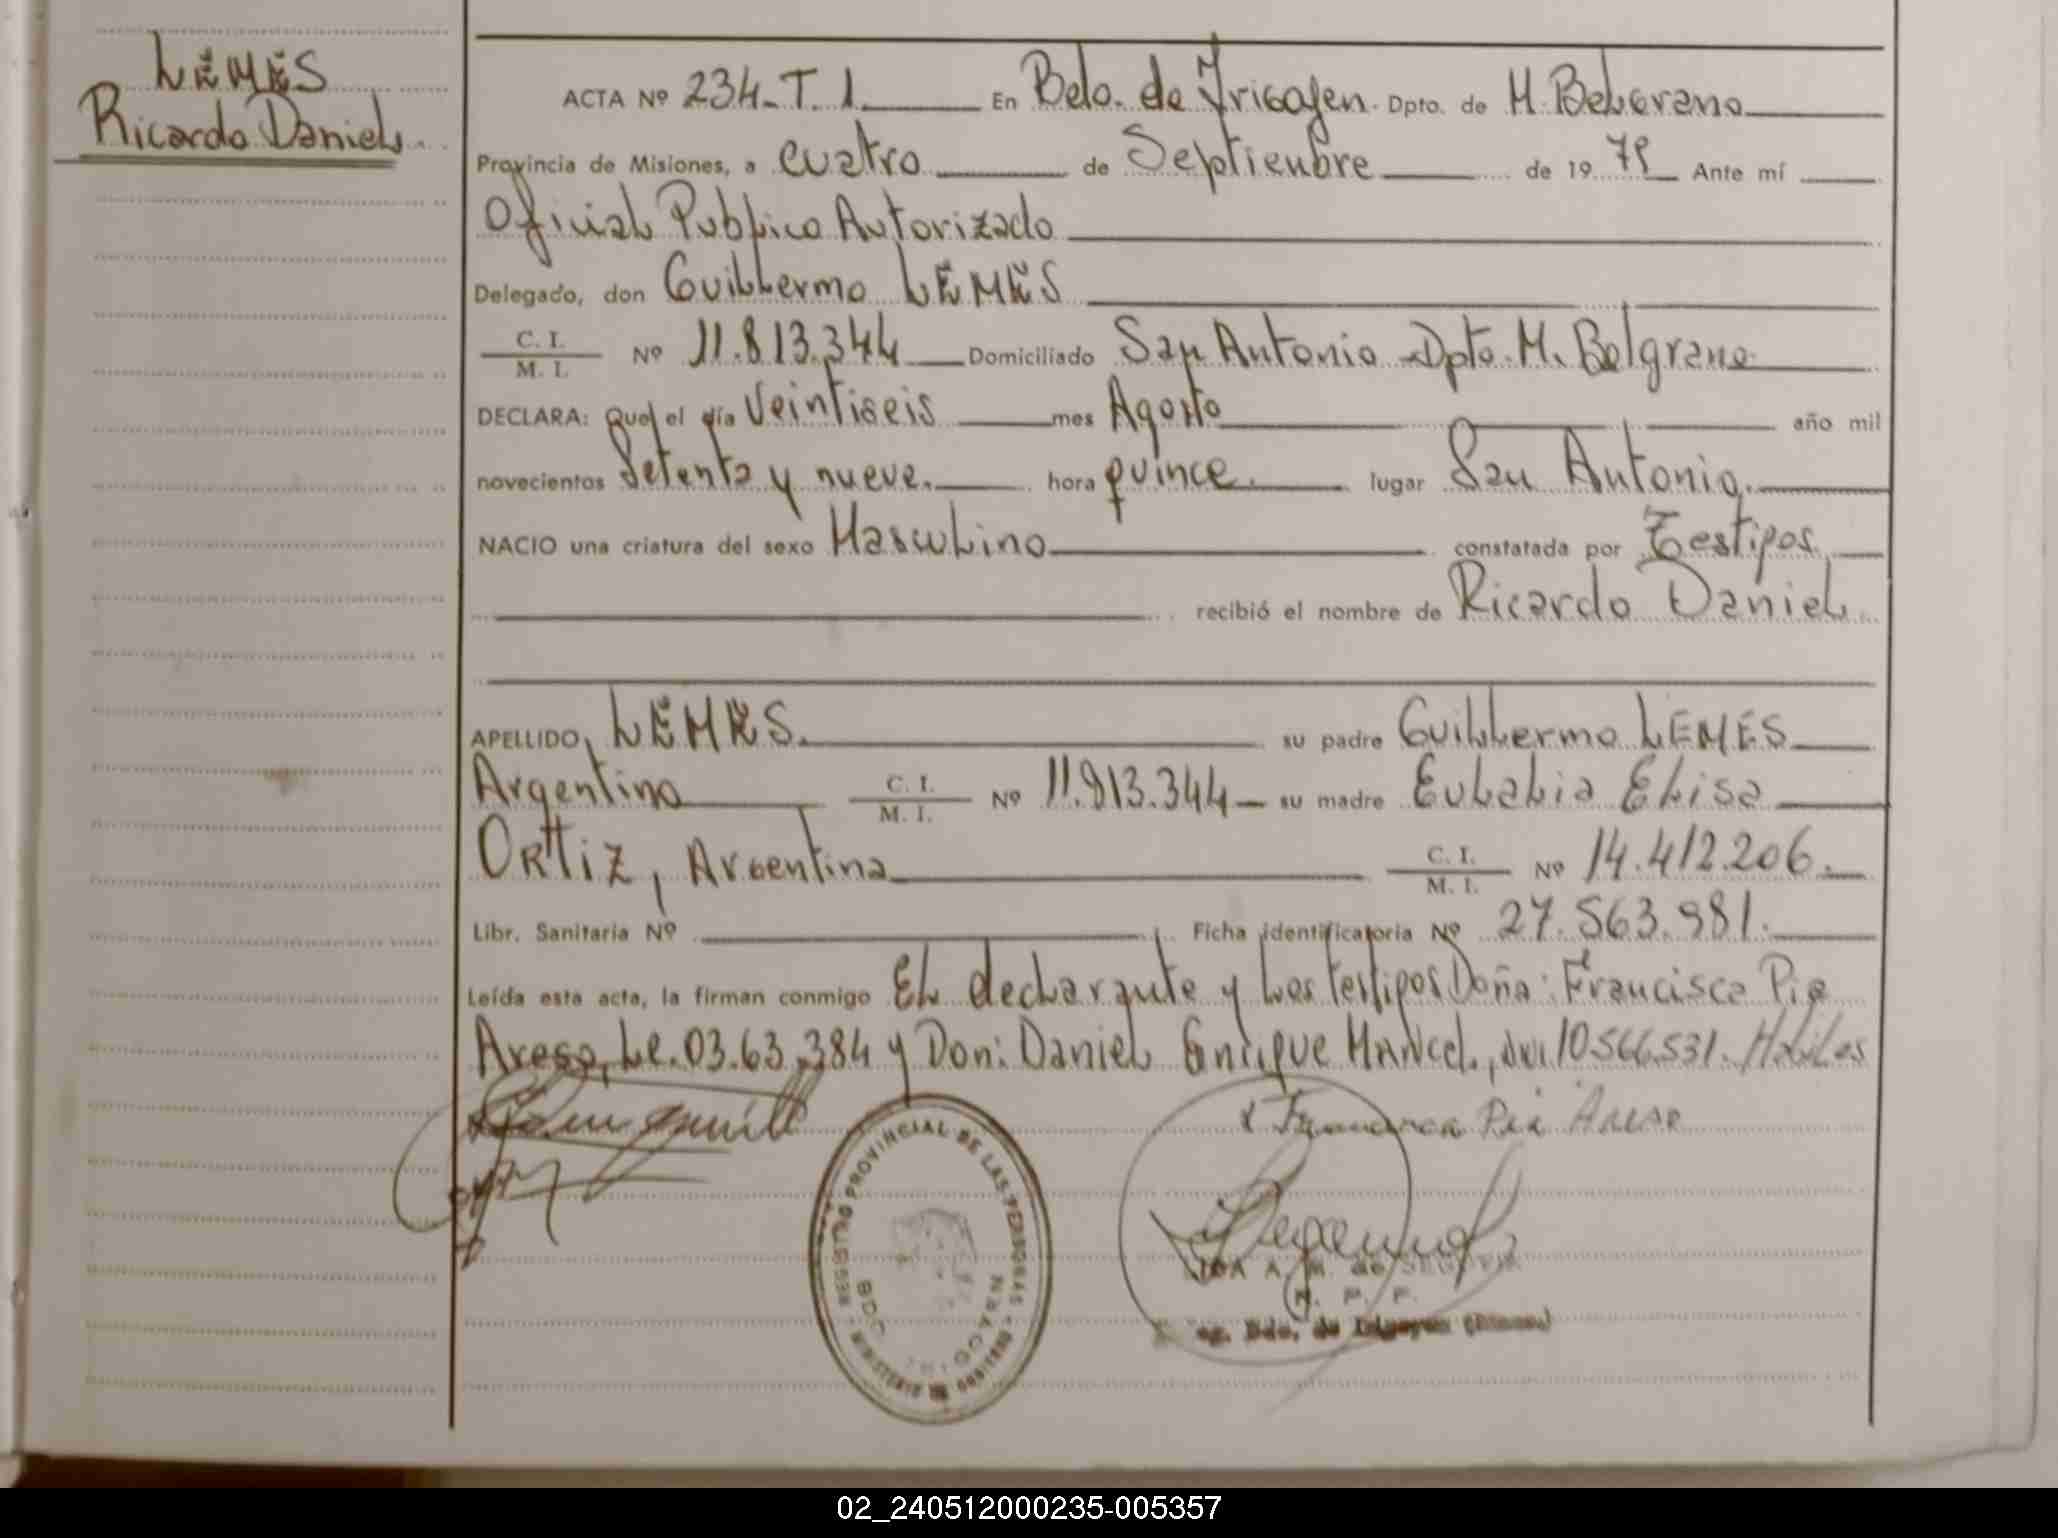 LEMES
Ricardo Daniel.
ACTA Nº 234-T. 1. En Bdo. de Irigoyen. Dpto. de M. Belgrano
Provincia de Misiones, a cuatro de Septiembre de 19 79 Ante mí
Oficial Publico Autorizado
Delegado, don Guillermo LEMES
C. I.
M. I. Nº 11.813.344 Domiciliado San Antonio Dpto. M. Belgrano
DECLARA: Que el día Veintiseis mes Agosto año mil
novecientos Setenta y nueve. hora quince. lugar San Antonio.
NACIO una criatura del sexo Masculino constatada por Testigos
recibió el nombre de Ricardo Daniel.
APELLIDO LEMES. su padre Guillermo LEMES
Argentino C. I.
M. I. Nº 11.813.344 su madre Eulalia Elisa
ORTIZ, Argentina C. I.
M. I. Nº 14.412.206.
Libr. Sanitaria Nº Ficha identificatoria Nº 27.563.981.
Leída esta acta, la firman conmigo El declarante y los testigos Doña: Francisca Pia
Le. 03.63.384 y Don: Daniel Enrique 10.566.531. Habiles
x Francisca Pia
REGISTRO PROVINCIAL DE LAS PERSONAS - MINISTERIO DE GOBIERNO
A. M. de
R. P. P.
Bdo. de Irigoyen (Mnes.)
02_240512000235-005357